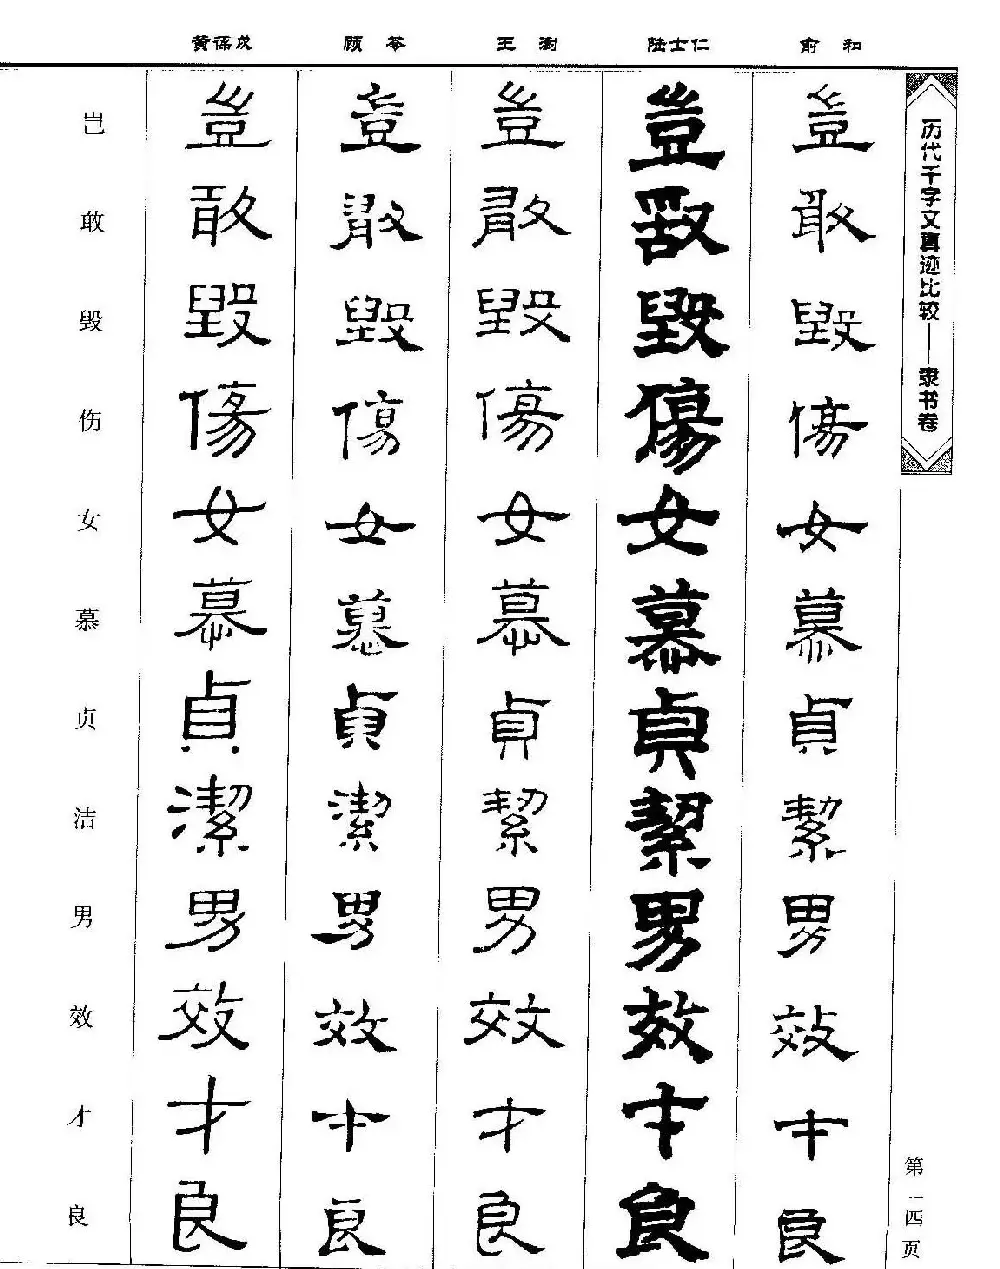 历代千字文真迹比较——隶书卷
俞和
豈敢毀傷女慕貞絜男效才良
陆士仁
豈敢毀傷女慕貞絜男效才良
王澍
豈敢毀傷女慕貞絜男效才良
顾苓
豈敢毀傷女慕貞潔男效才良
黄葆戉
豈敢毀傷女慕貞潔男效才良
岂敢毁伤女慕贞洁男效才良
第一四页